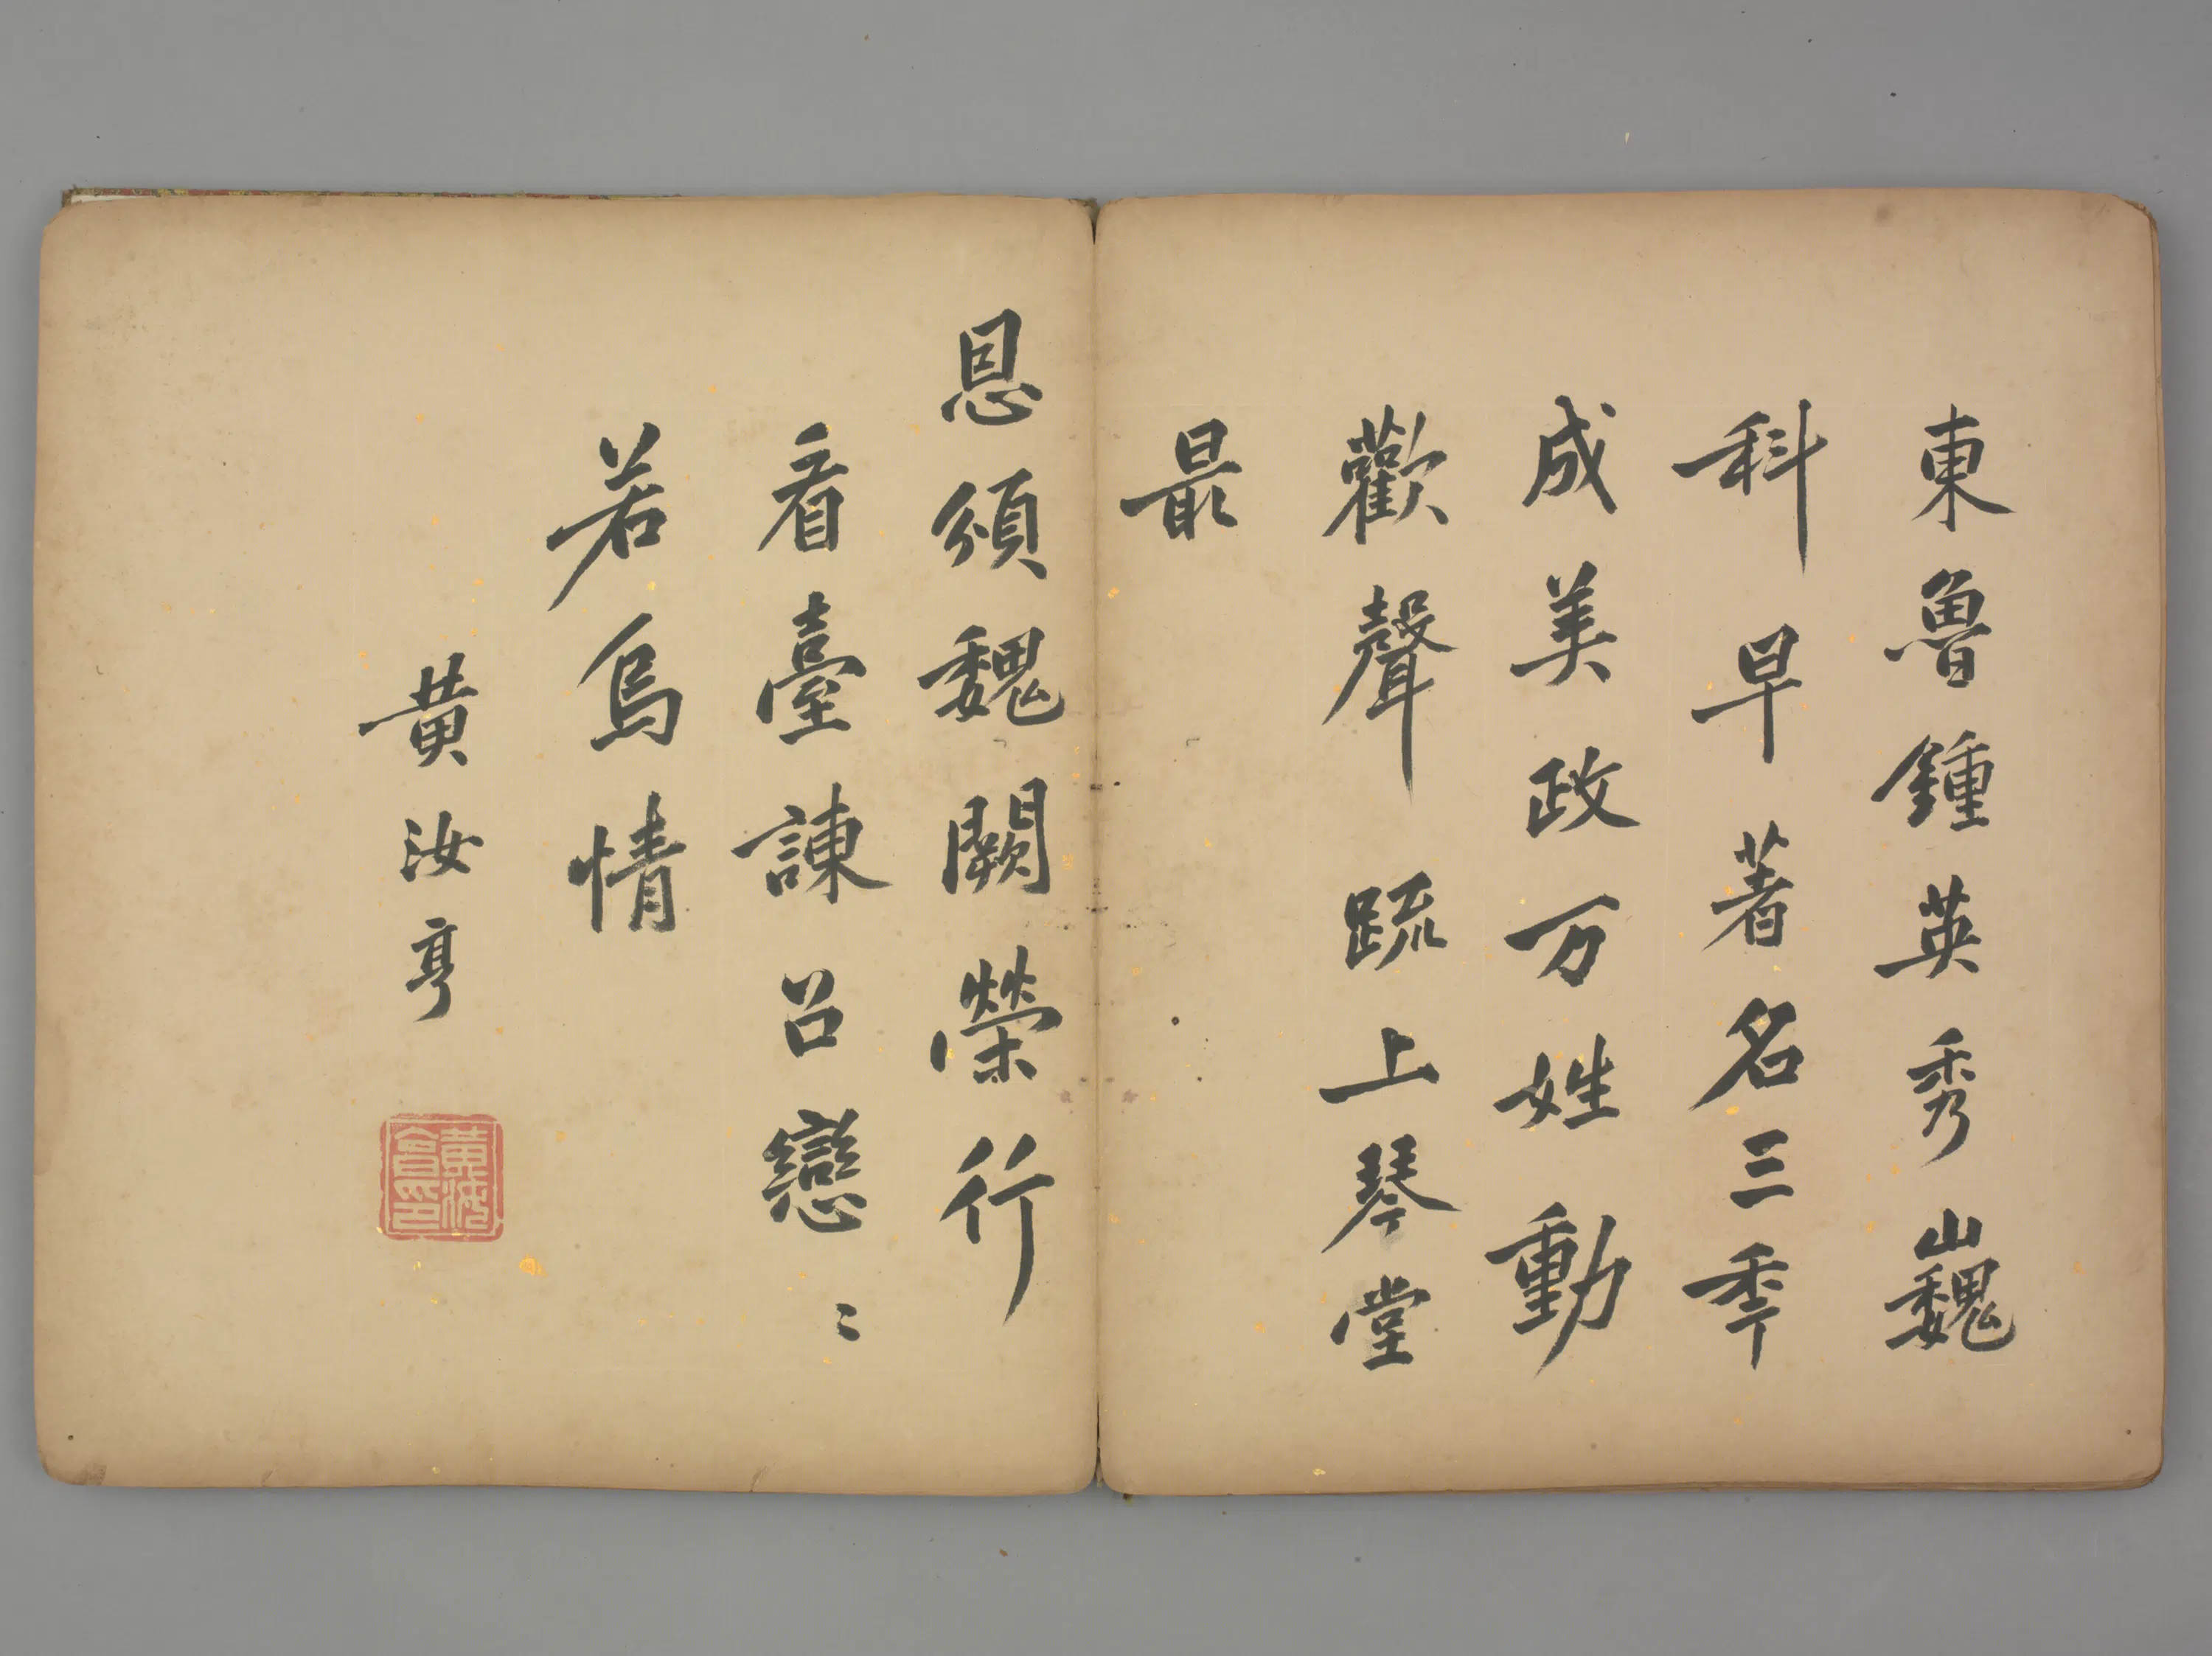 東魯鍾英秀巍
科早著名三秊
成美政万姓動
歡聲䟽上琴堂
最
恩頒魏闕榮行
看臺諌召戀〻
若烏情
黄汝亨